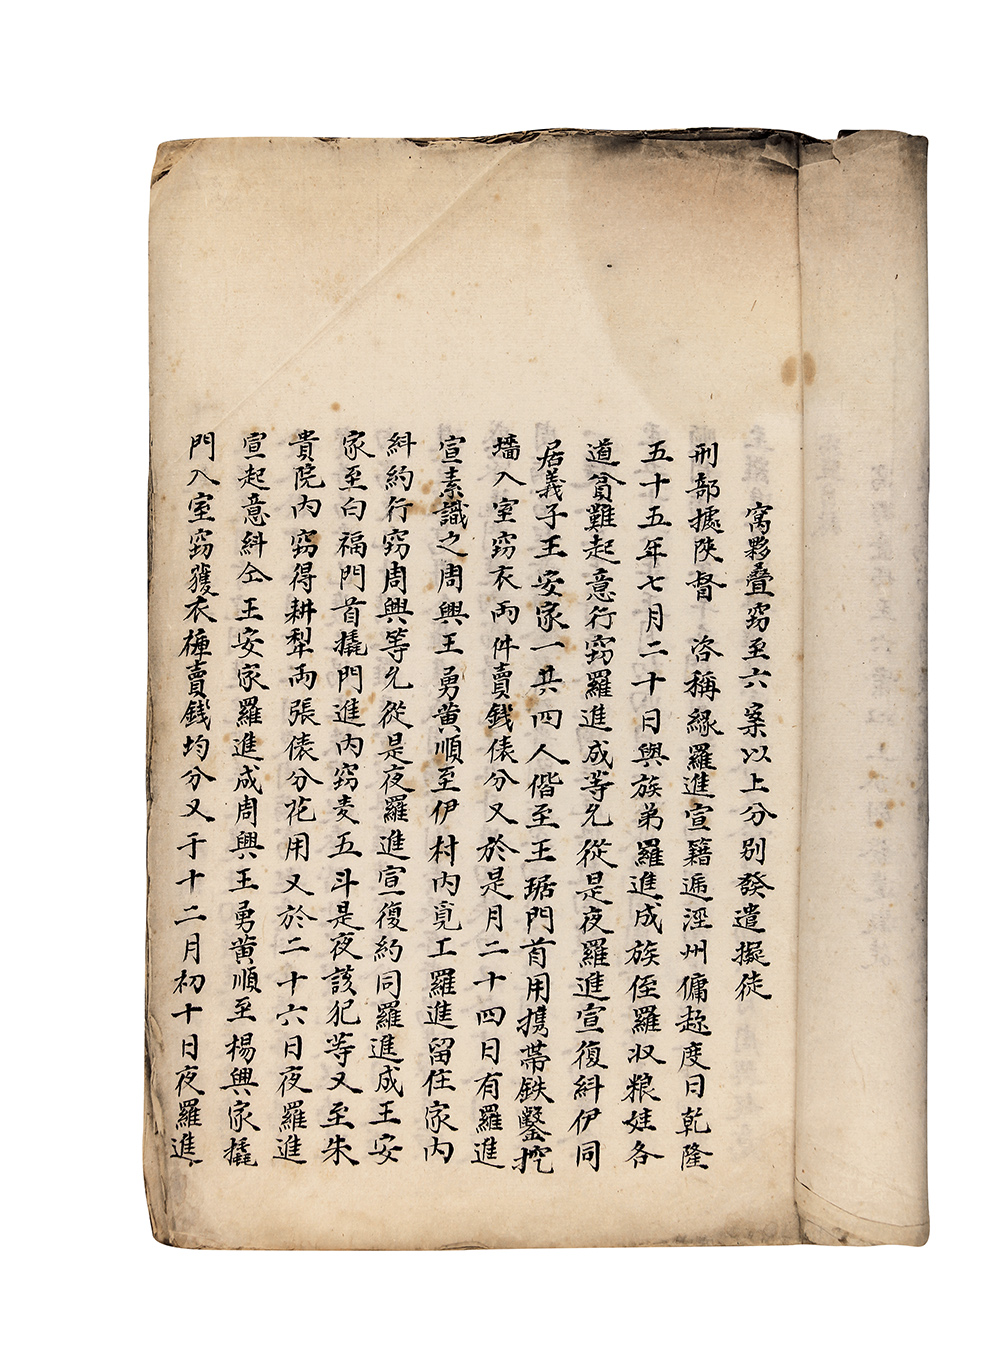 窩夥疊窃至六案以上分别發遣擬徒
刑部據陝督　咨稱緣羅進宣籍逓涇州傭趂度日乾隆
五十五年七月二十日與族弟羅進成族侄羅收粮娃各
道貧難起意行窃羅進成等允從是夜羅進宣復糾伊同
居義子王安家一共四人偕至王琚門首用携帶鉄鑿挖
墻入室窃衣兩件賣銭俵分又於是月二十四日有羅進
宣素識之周興王勇黄順至伊村内覓工羅進留住家内
糾約行窃周興等允從是夜羅進宣復約同羅進成王安
家至白福門首撬門進内窃麦五斗是夜該犯等又至朱
貴院内窃得耕犁両張俵分花用又於二十六日夜羅進
宣起意糾仝王安家羅進成周興王勇黄順至楊興家撬
門入室窃獲衣褲賣銭均分又于十二月初十日夜羅進